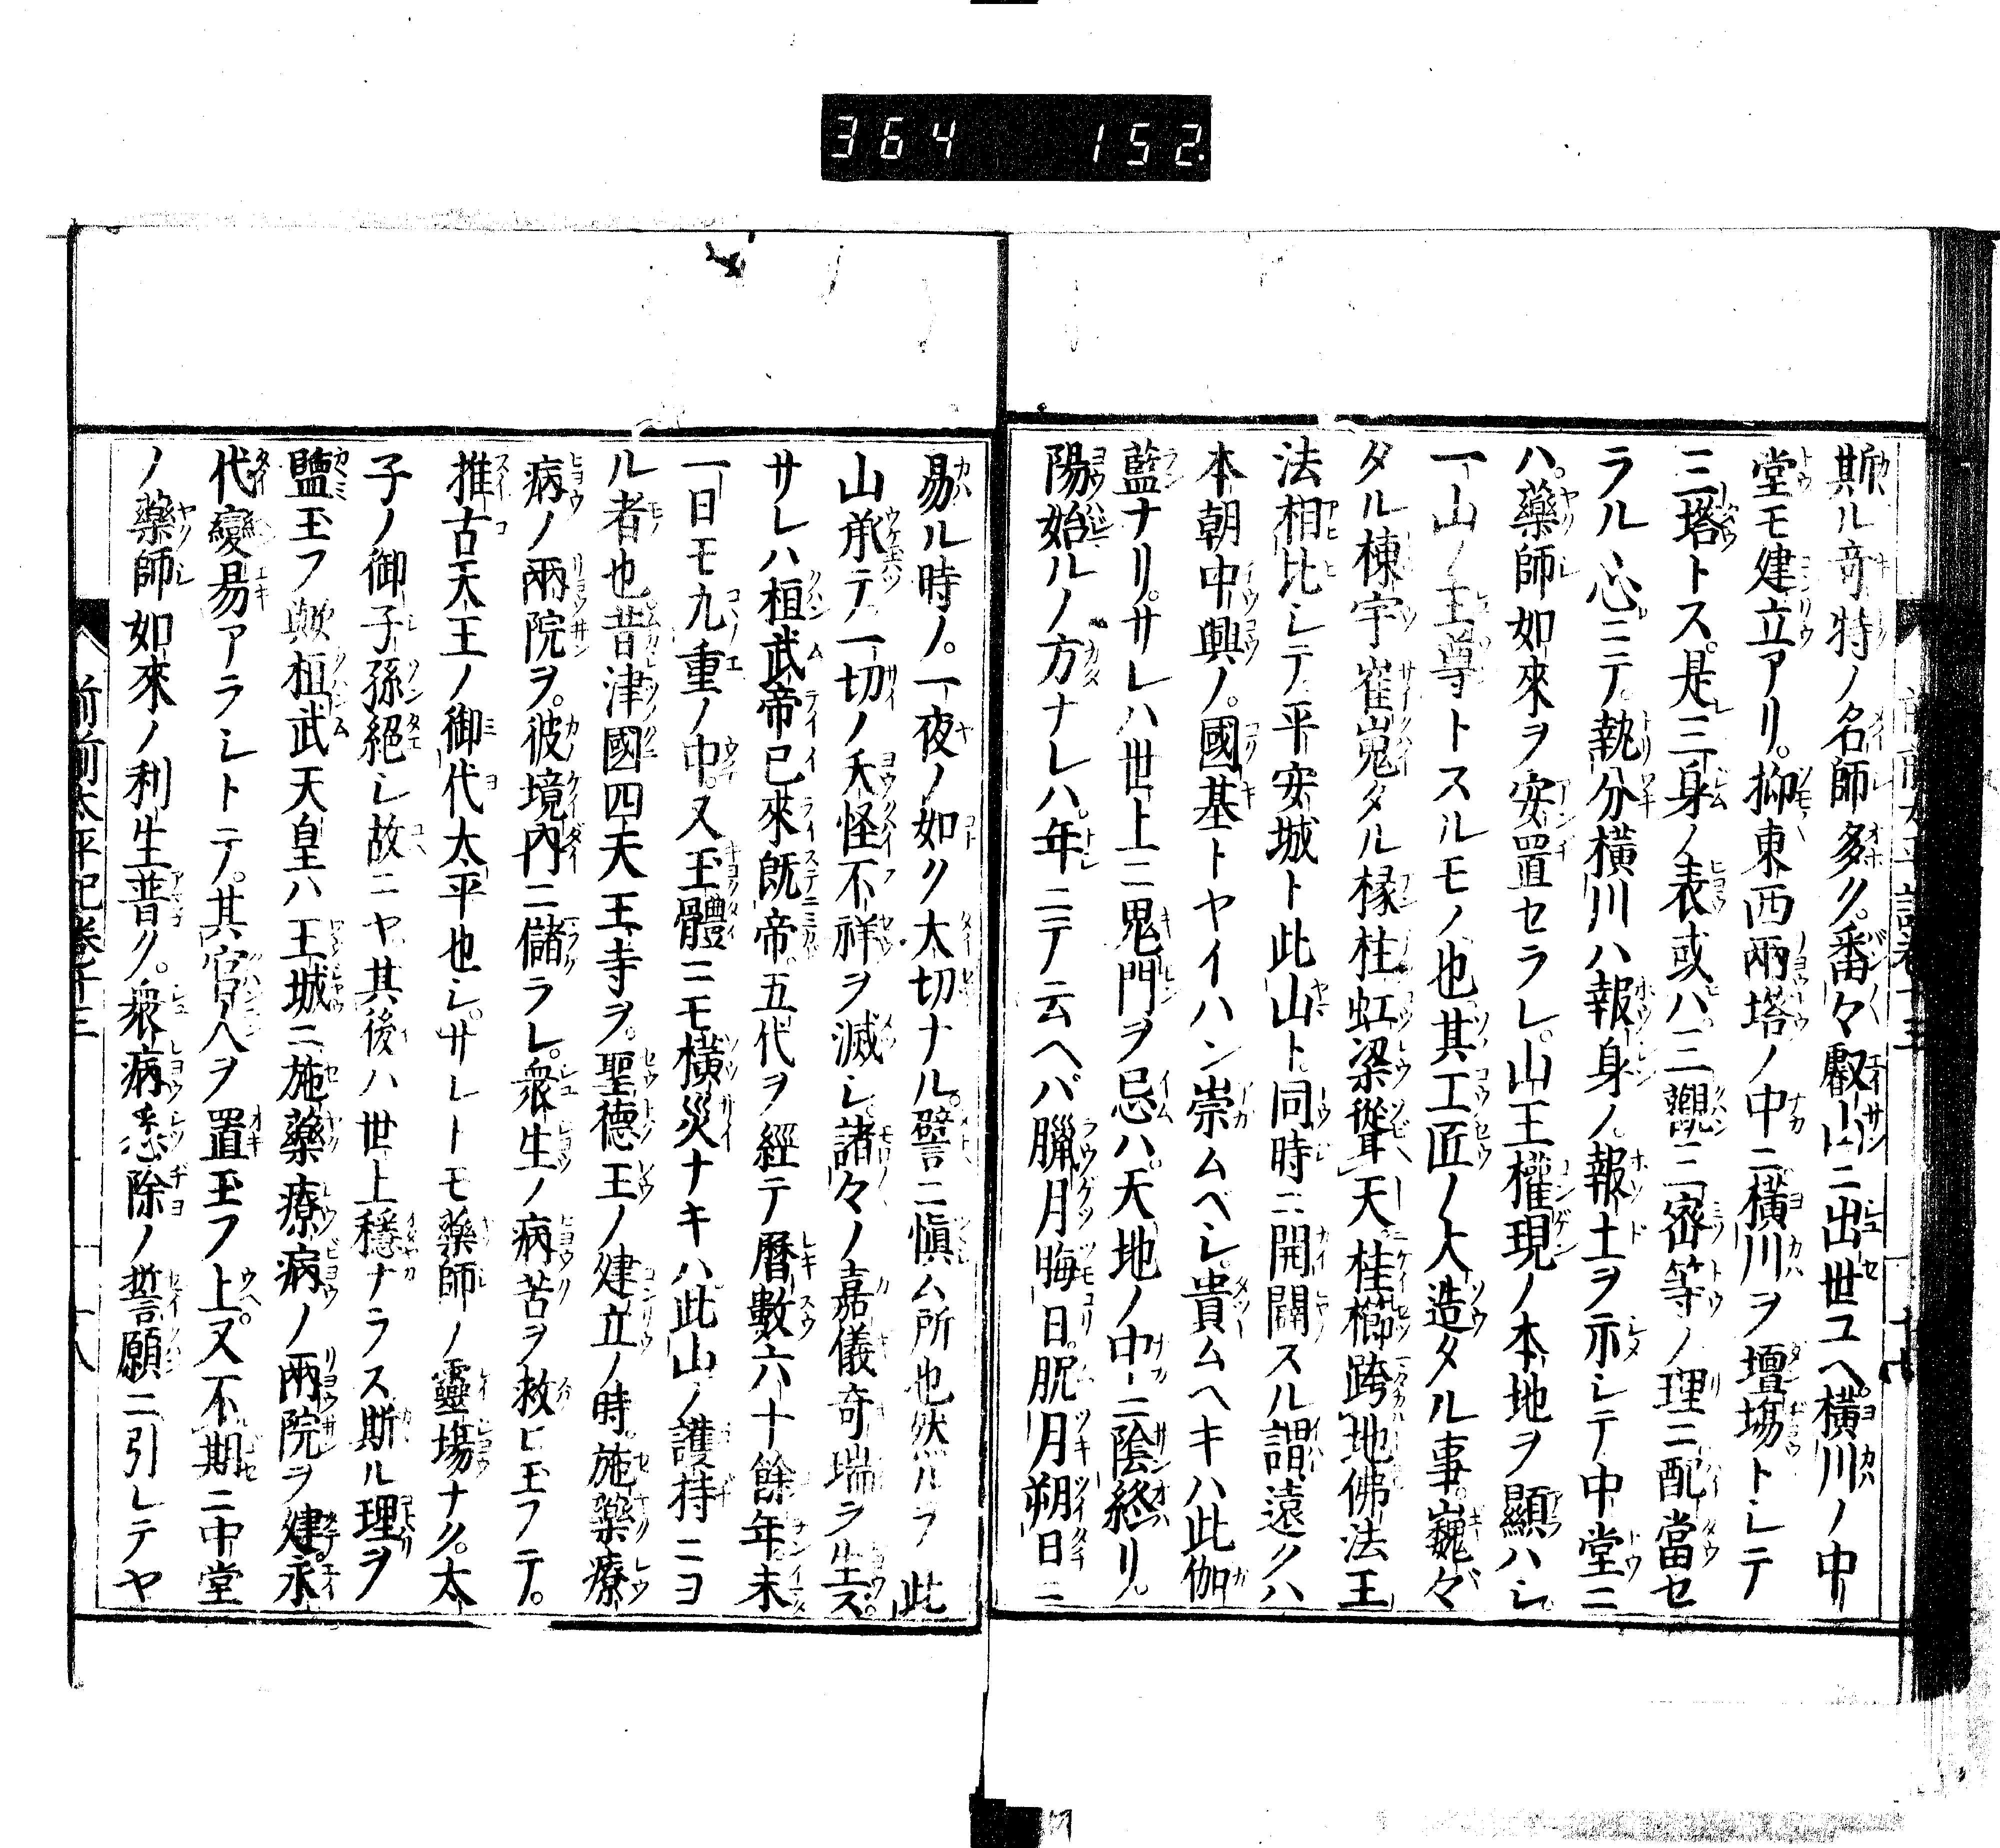 364 152.
斯ル奇特ノ名師多ク。番々叡山ニ出世ユヘ。横川ノ中
堂モ建立アリ。抑東西兩塔ノ中ニ横川ヲ壇場トシテ
三塔トス。是三身ノ表或ハ三觀三密等ノ理ニ配當セ
ラル心ニテ。執分横川ハ報身ノ報土ヲ示シテ中堂ニ
ハ。藥師如來ヲ安置セラレ。山王權現ノ本地ヲ顯ハシ
一山ノ主尊トスルモノ也。其工匠ノ大造タル事。巍々
タル棟宇崔嵬タル椽柱虹梁聳天桂櫛跨地佛法王
法相比シテ平安城ト此山ト同時ニ開闢スル謂遠クハ
本朝中興ノ。國基トヤイハン崇ムベシ。貴ムヘキハ此伽
藍ナリ。サレハ世上ニ鬼門ヲ忌ハ。天地ノ中ニ陰終リ。
陽始ルノ方ナレハ。年ニテ云ヘバ臘月晦日。月朔日ニ
易ル時ノ。一夜ノ如ク太切ナル。譬ニ愼ム所也然ルヲ此
山承テ一切ノ妖怪不祥ヲ滅シ。諸々ノ嘉儀奇瑞ヲ生ス。
サレハ桓武帝已來既帝。五代ヲ經テ曆數六十餘年。未
一日モ九重ノ中。又玉體ニモ横災ナキハ此山ノ護持ニヨ
ル者也昔津國四天王寺ヲ。聖德王ノ建立ノ時。施藥療
病ノ兩院ヲ。彼境內ニ儲ラレ。衆生ノ病苦ヲ救ヒ玉フテ。
推古天王ノ御代太平也シ。サレトモ藥師ノ靈場ナク。太
子ノ御子孫絕シ故ニヤ其後ハ世上穩ナラス斯ル理ヲ
鹽玉フ歟桓武天皇ハ王城ニ施藥療病ノ兩院ヲ建。永
代變易アラシトテ。其官人ヲ置玉フ上。又不期ニ中堂
ノ藥師如來ノ利生普ク。衆病悉除ノ誓願ニ引レテヤ
前前太平記卷十三